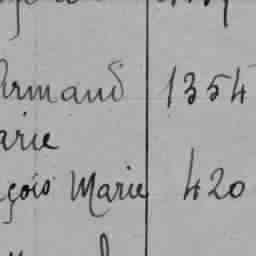 Armand 1354
arie
çois Marie 420